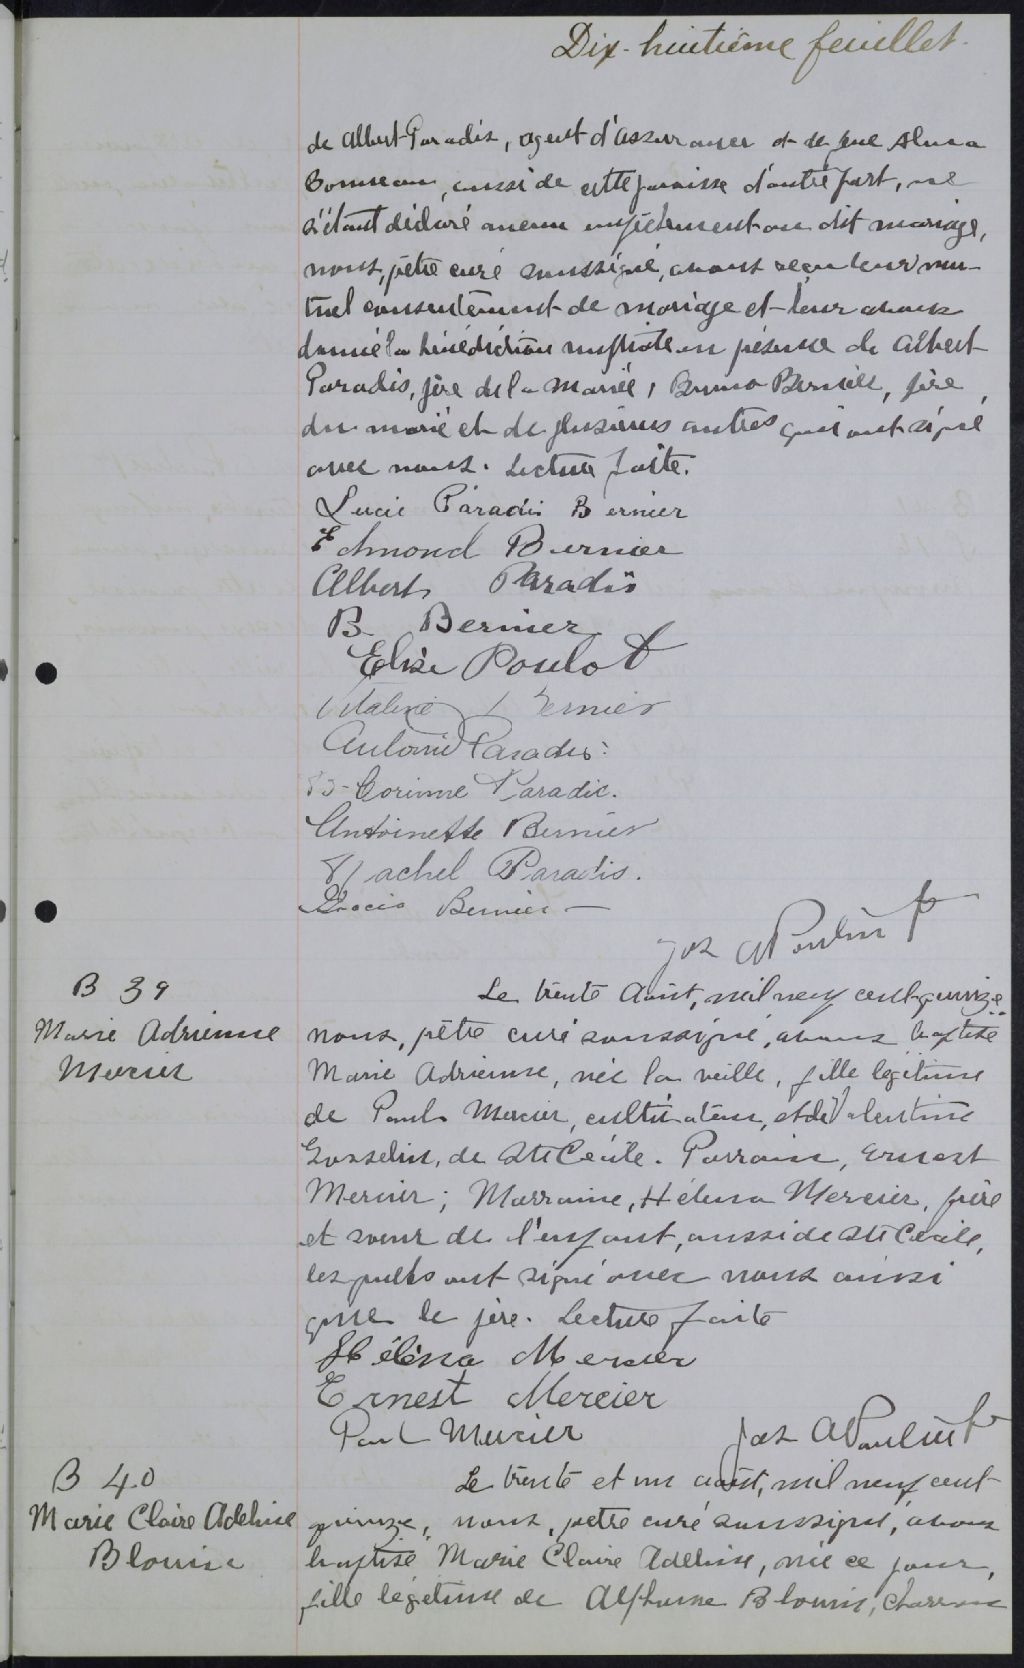 Dix-huitième feuillet.
de Albert Paradis, agent d'assurances et de feue Alma
Bonneau, aussi de cette paroisse d'autre part, ne
s'étant déclaré aucun empêchement au dit mariage,
nous, pêtre curé soussigné, avons reçu leur mu-
tuel consentement de mariage et leur avons
donné la bénédiction nuptiale en présence de Albert
Paradis, père de la mariée, Bruno Bernier, père
du marié et de plusieurs autres qui ont signé
avec nous. Lecture faite.
Lucie Paradis Bernier
Edmond Bernier
Albert Paradis
B Bernier
Elise Pouliot
Vitaline Bernier
Antonio Paradis
Corinne Paradis.
Antoinette Bernier
Rachel Paradis.
Bernier
Jos A Poulin Ptr
B 39
Marie Adrienne
Mercier
Le trente Août, mil neuf cent quinze
nous, pêtre curé soussigné, avons baptisé
Marie Adrienne, née la veille, fille légitime
de Paul Mercier, cultivateur, et de Valentine
Gosselin, de Ste Cécile. Parrain, Ernest
Mercier; Marraine, Hélena Mercier, frère
et soeur de l'enfant, aussi de Ste Cécile,
lesquels ont signé avec nous ainsi
que le père. Lecture faite
Héléna Mercier
Ernest Mercier
Paul Mercier
Jos A Poulin Ptr
B 40
Marie Claire Adeline
Blouin
Le trente et un août, mil neuf cent
quinze, nous, pêtre curé soussigné, avons
baptisé Marie Claire Adeline, née ce jour,
fille légitime de Alphonse Blouin, charron